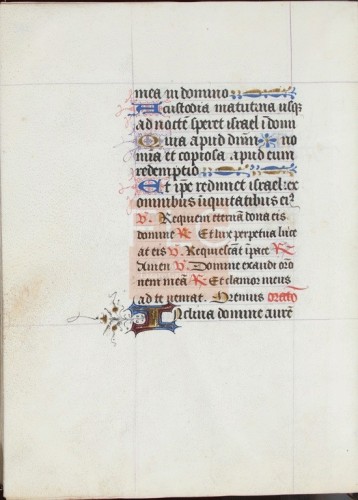 mea in domino
A custodia matutina usq̢
ad nocte̅ speret israel i̅ domi
Quia apud dn̅m no
mia et copiosa apud eum
redemptio
Et ip̅e redimet israel: ex
omnibus iniquitatibus ei⁹
V. Requiem eterna̅ dona eis
domine R. Et lux perpetua luce
at eis V. Requiesca̅t i̅ pace R.
Amen V. Domine exaudi oro̅
nem mea̅ R. Et clamor meus
ad te veniat. Oremus oratio
Inclina domine aurem̅